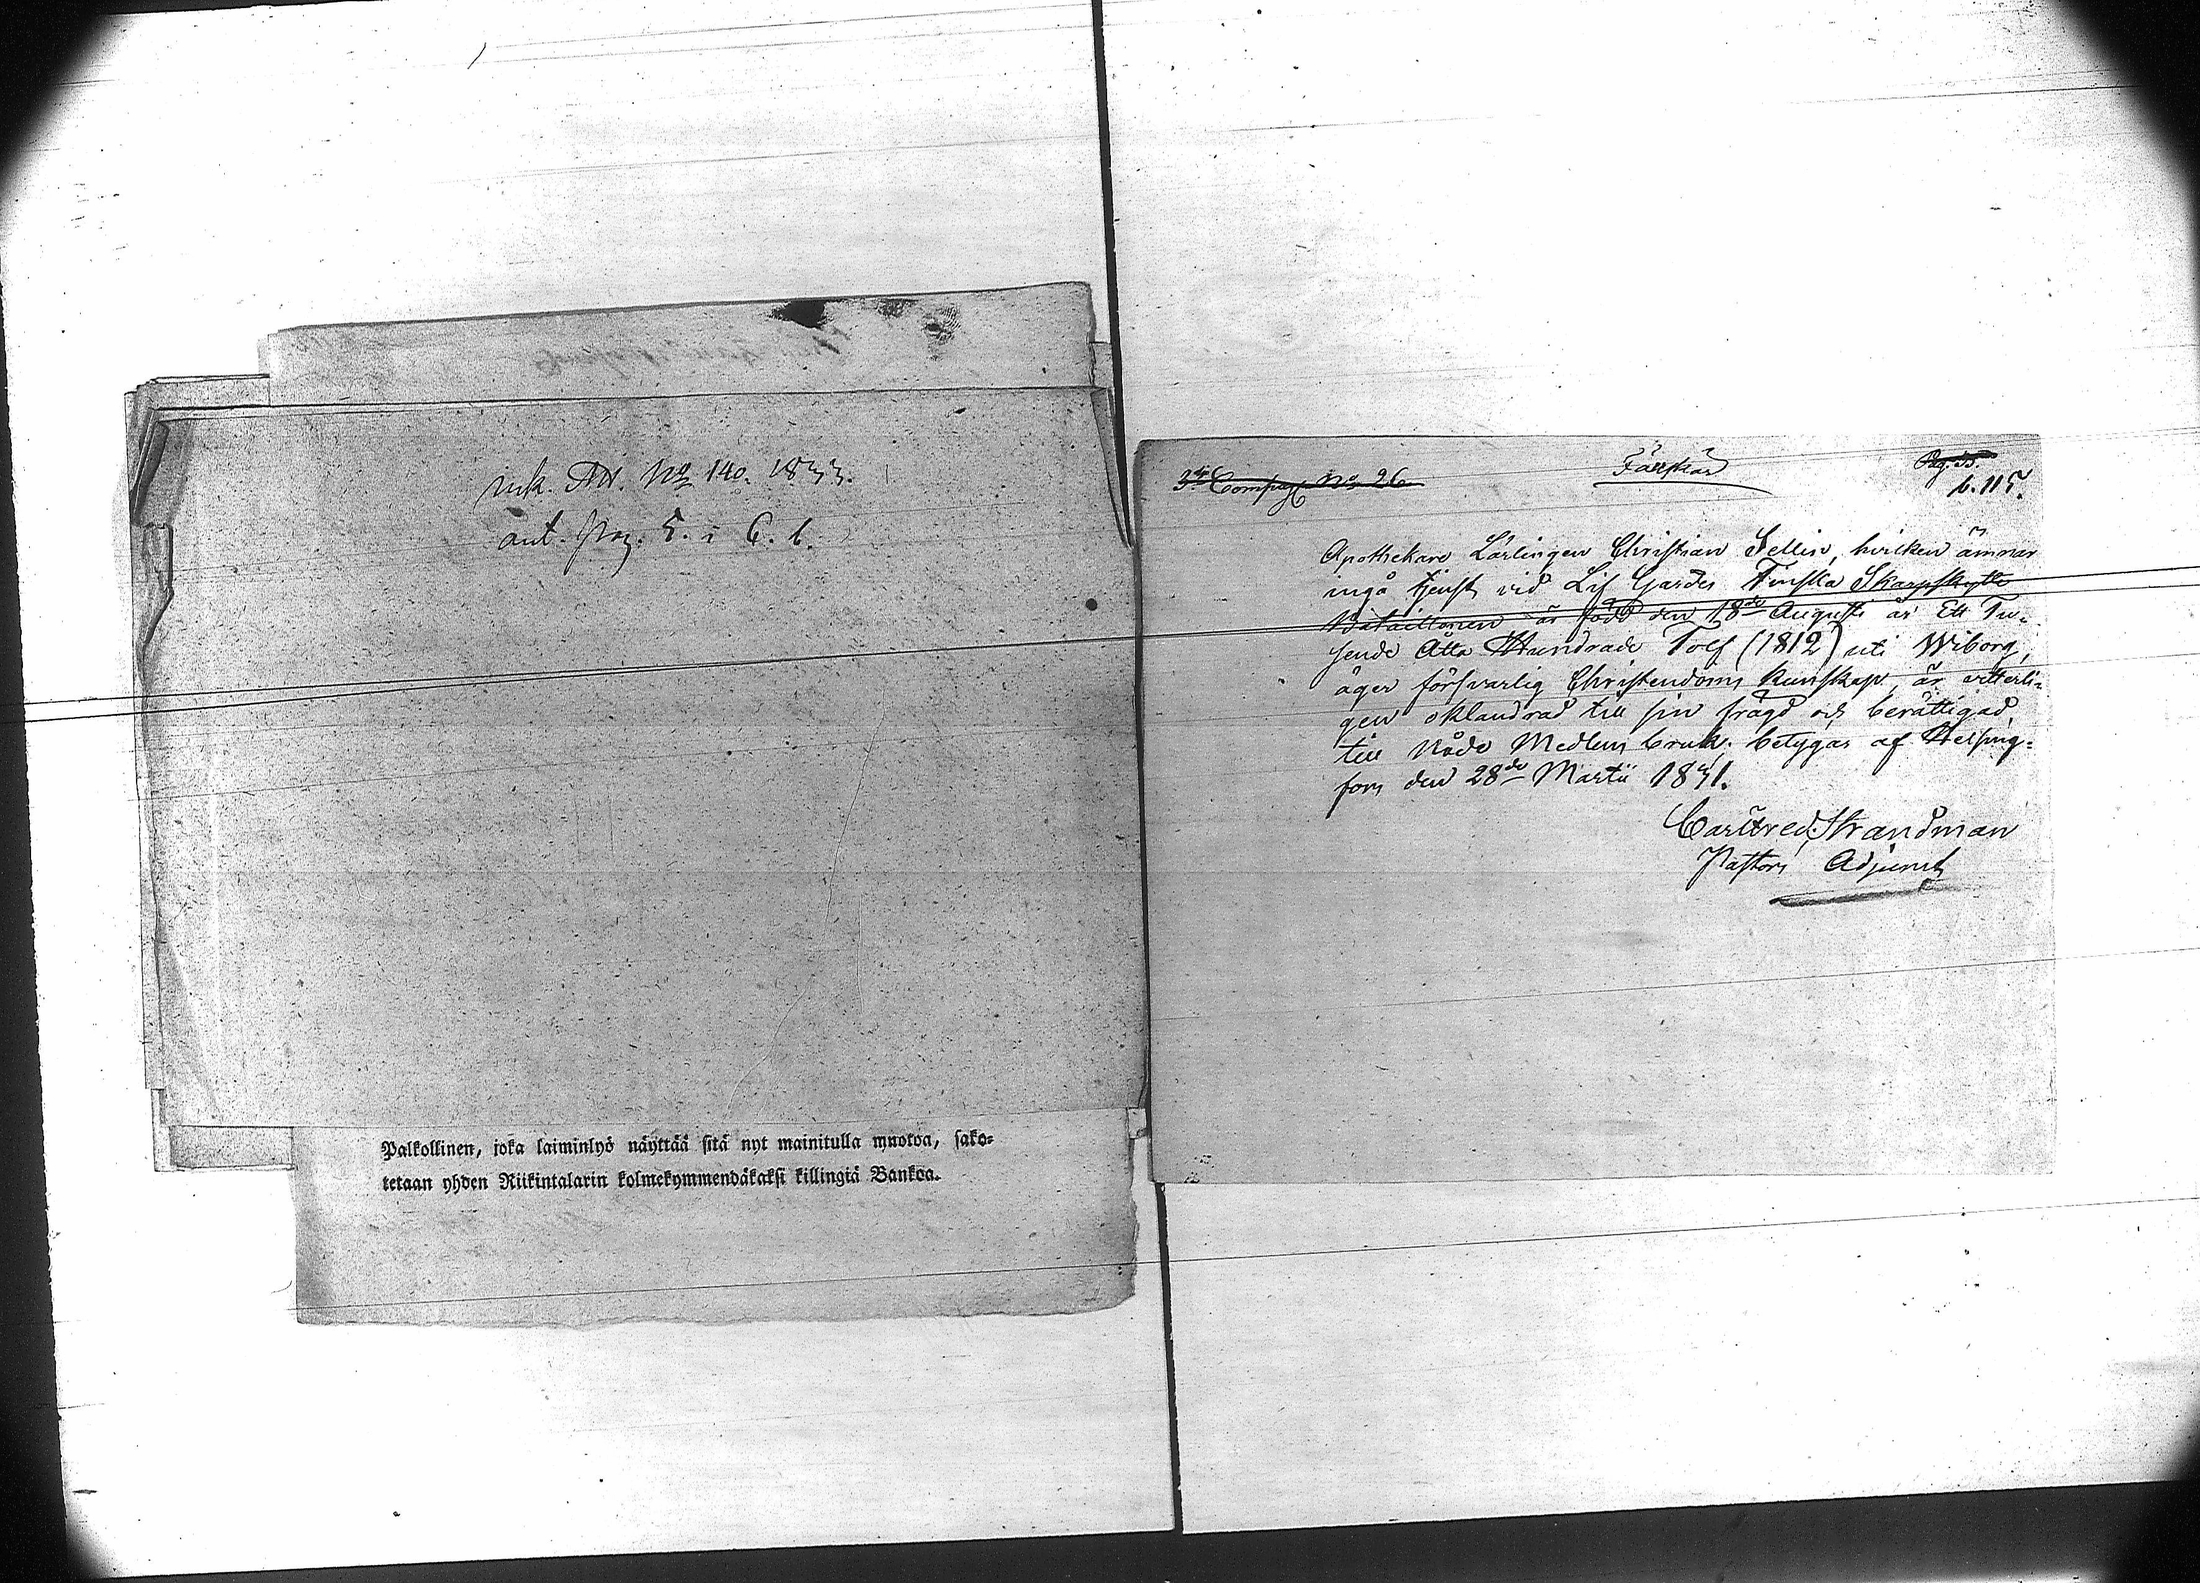 ink. Att. No 140. 1833.
ant. pag. 5. i C. b.
Palkollinen, joka laiminlyö näyttää sitä nyt mainitulla muotoa, sako-
tetaan yhden Riikintalarin kolmekymmendäkaksi killingiä Bankoa.
3de Compag. No 26
Färskär
Pag. 35.
b. 115.
Apothekare Lärlingen Christian Sellin, hvilken ämnar
ingå tjenst vid Lif Gardes Finska Skarpskytte
Bataillonen är född den 18de Augusti år Ett Tu-
sende Åtta Hundrade Tolf (1812) uti Wiborg,
äger försvarlig Christendoms kunskap, är vitterli-
gen oklandrad till sin frägd och berättigad
till Nåde Medlens bruk; betygas af Helsing-
fors den 28de Martii 1831.
Carl Fred. Strandman
Pastors Adjunct